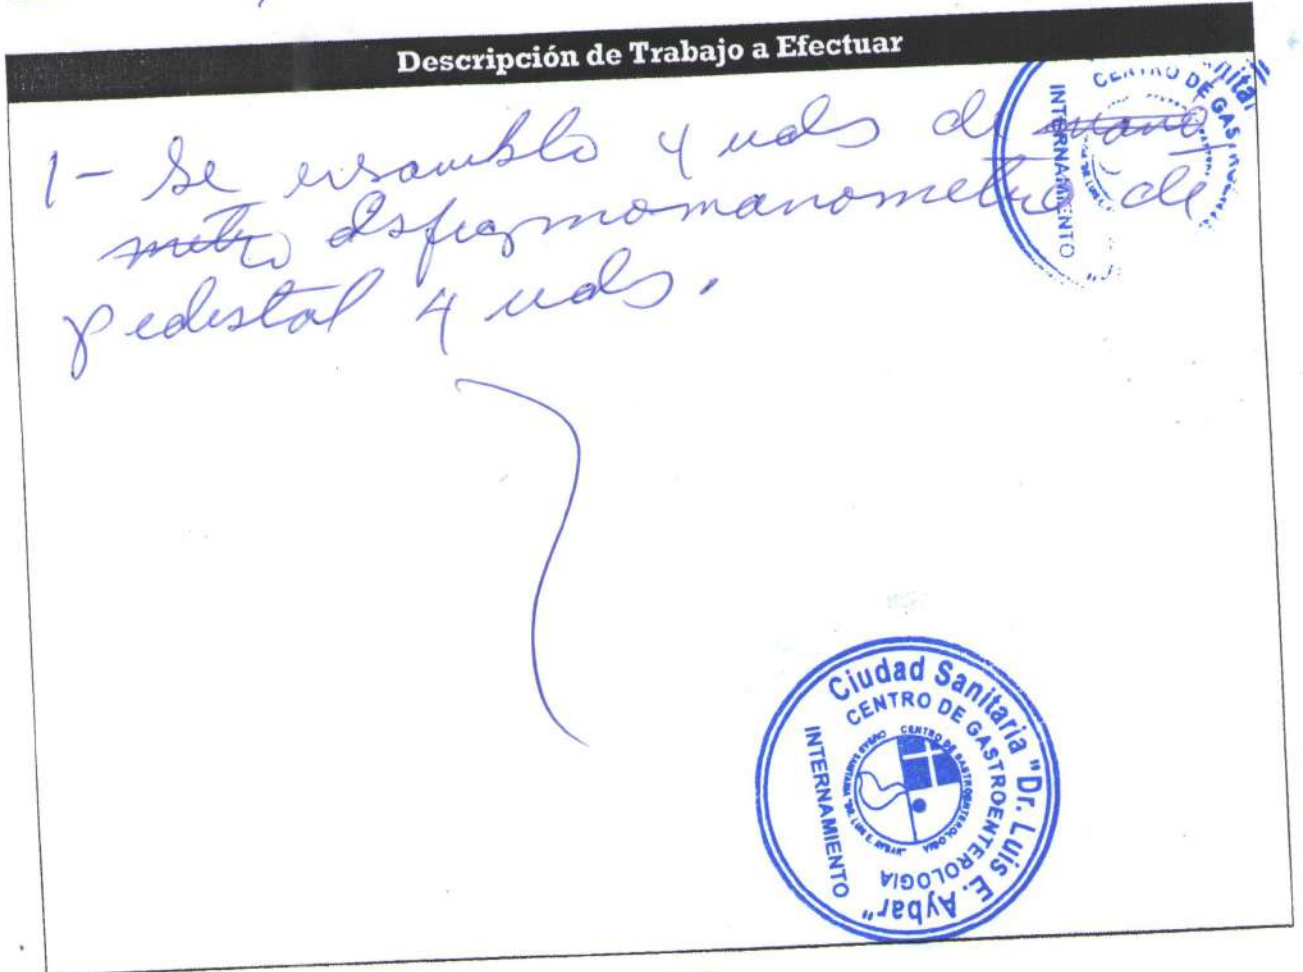 Descripción de Trabajo a Efectuar
1- Se ensamblo 4 uds de mano
metro esfigmomanometro de
pedestal 4 uds.
CENTRO DE GAS
INTERNAMIENTO
Ciudad Sanitaria "Dr. Luis E. Aybar"
CENTRO DE GASTROENTEROLOGIA
INTERNAMIENTO